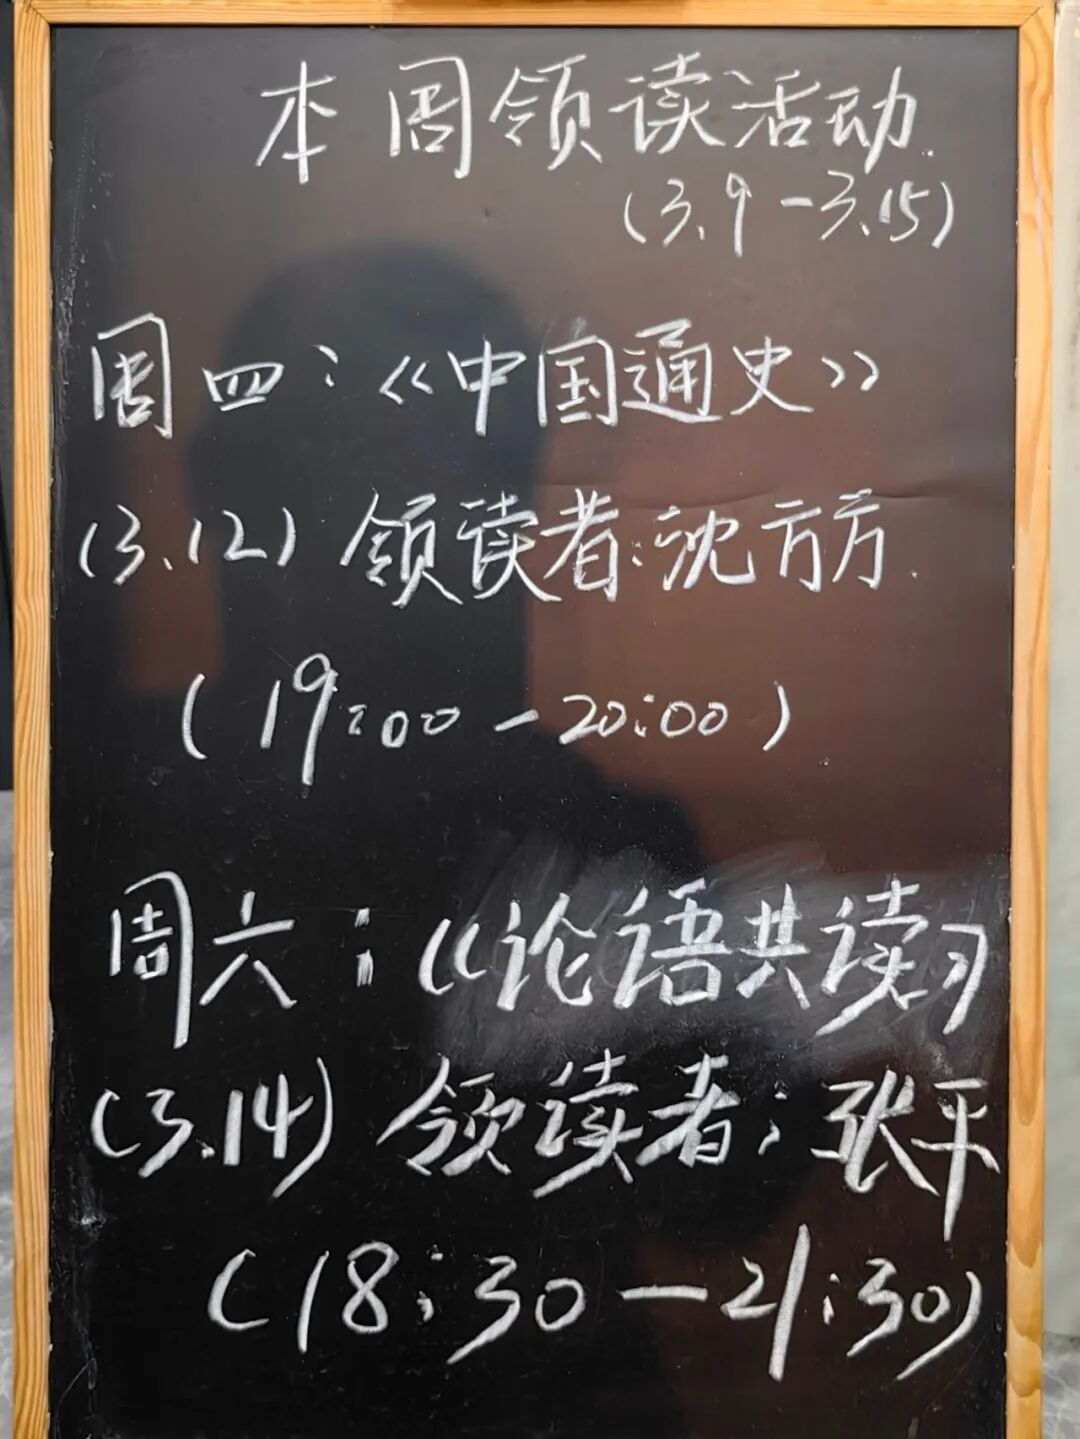 本周领读活动
(3.9-3.15)
周四:《中国通史》
(3.12) 领读者:沈方方
(19:00-20:00)
周六:《论语共读》
(3.14) 领读者:张平
(18:30-21:30)